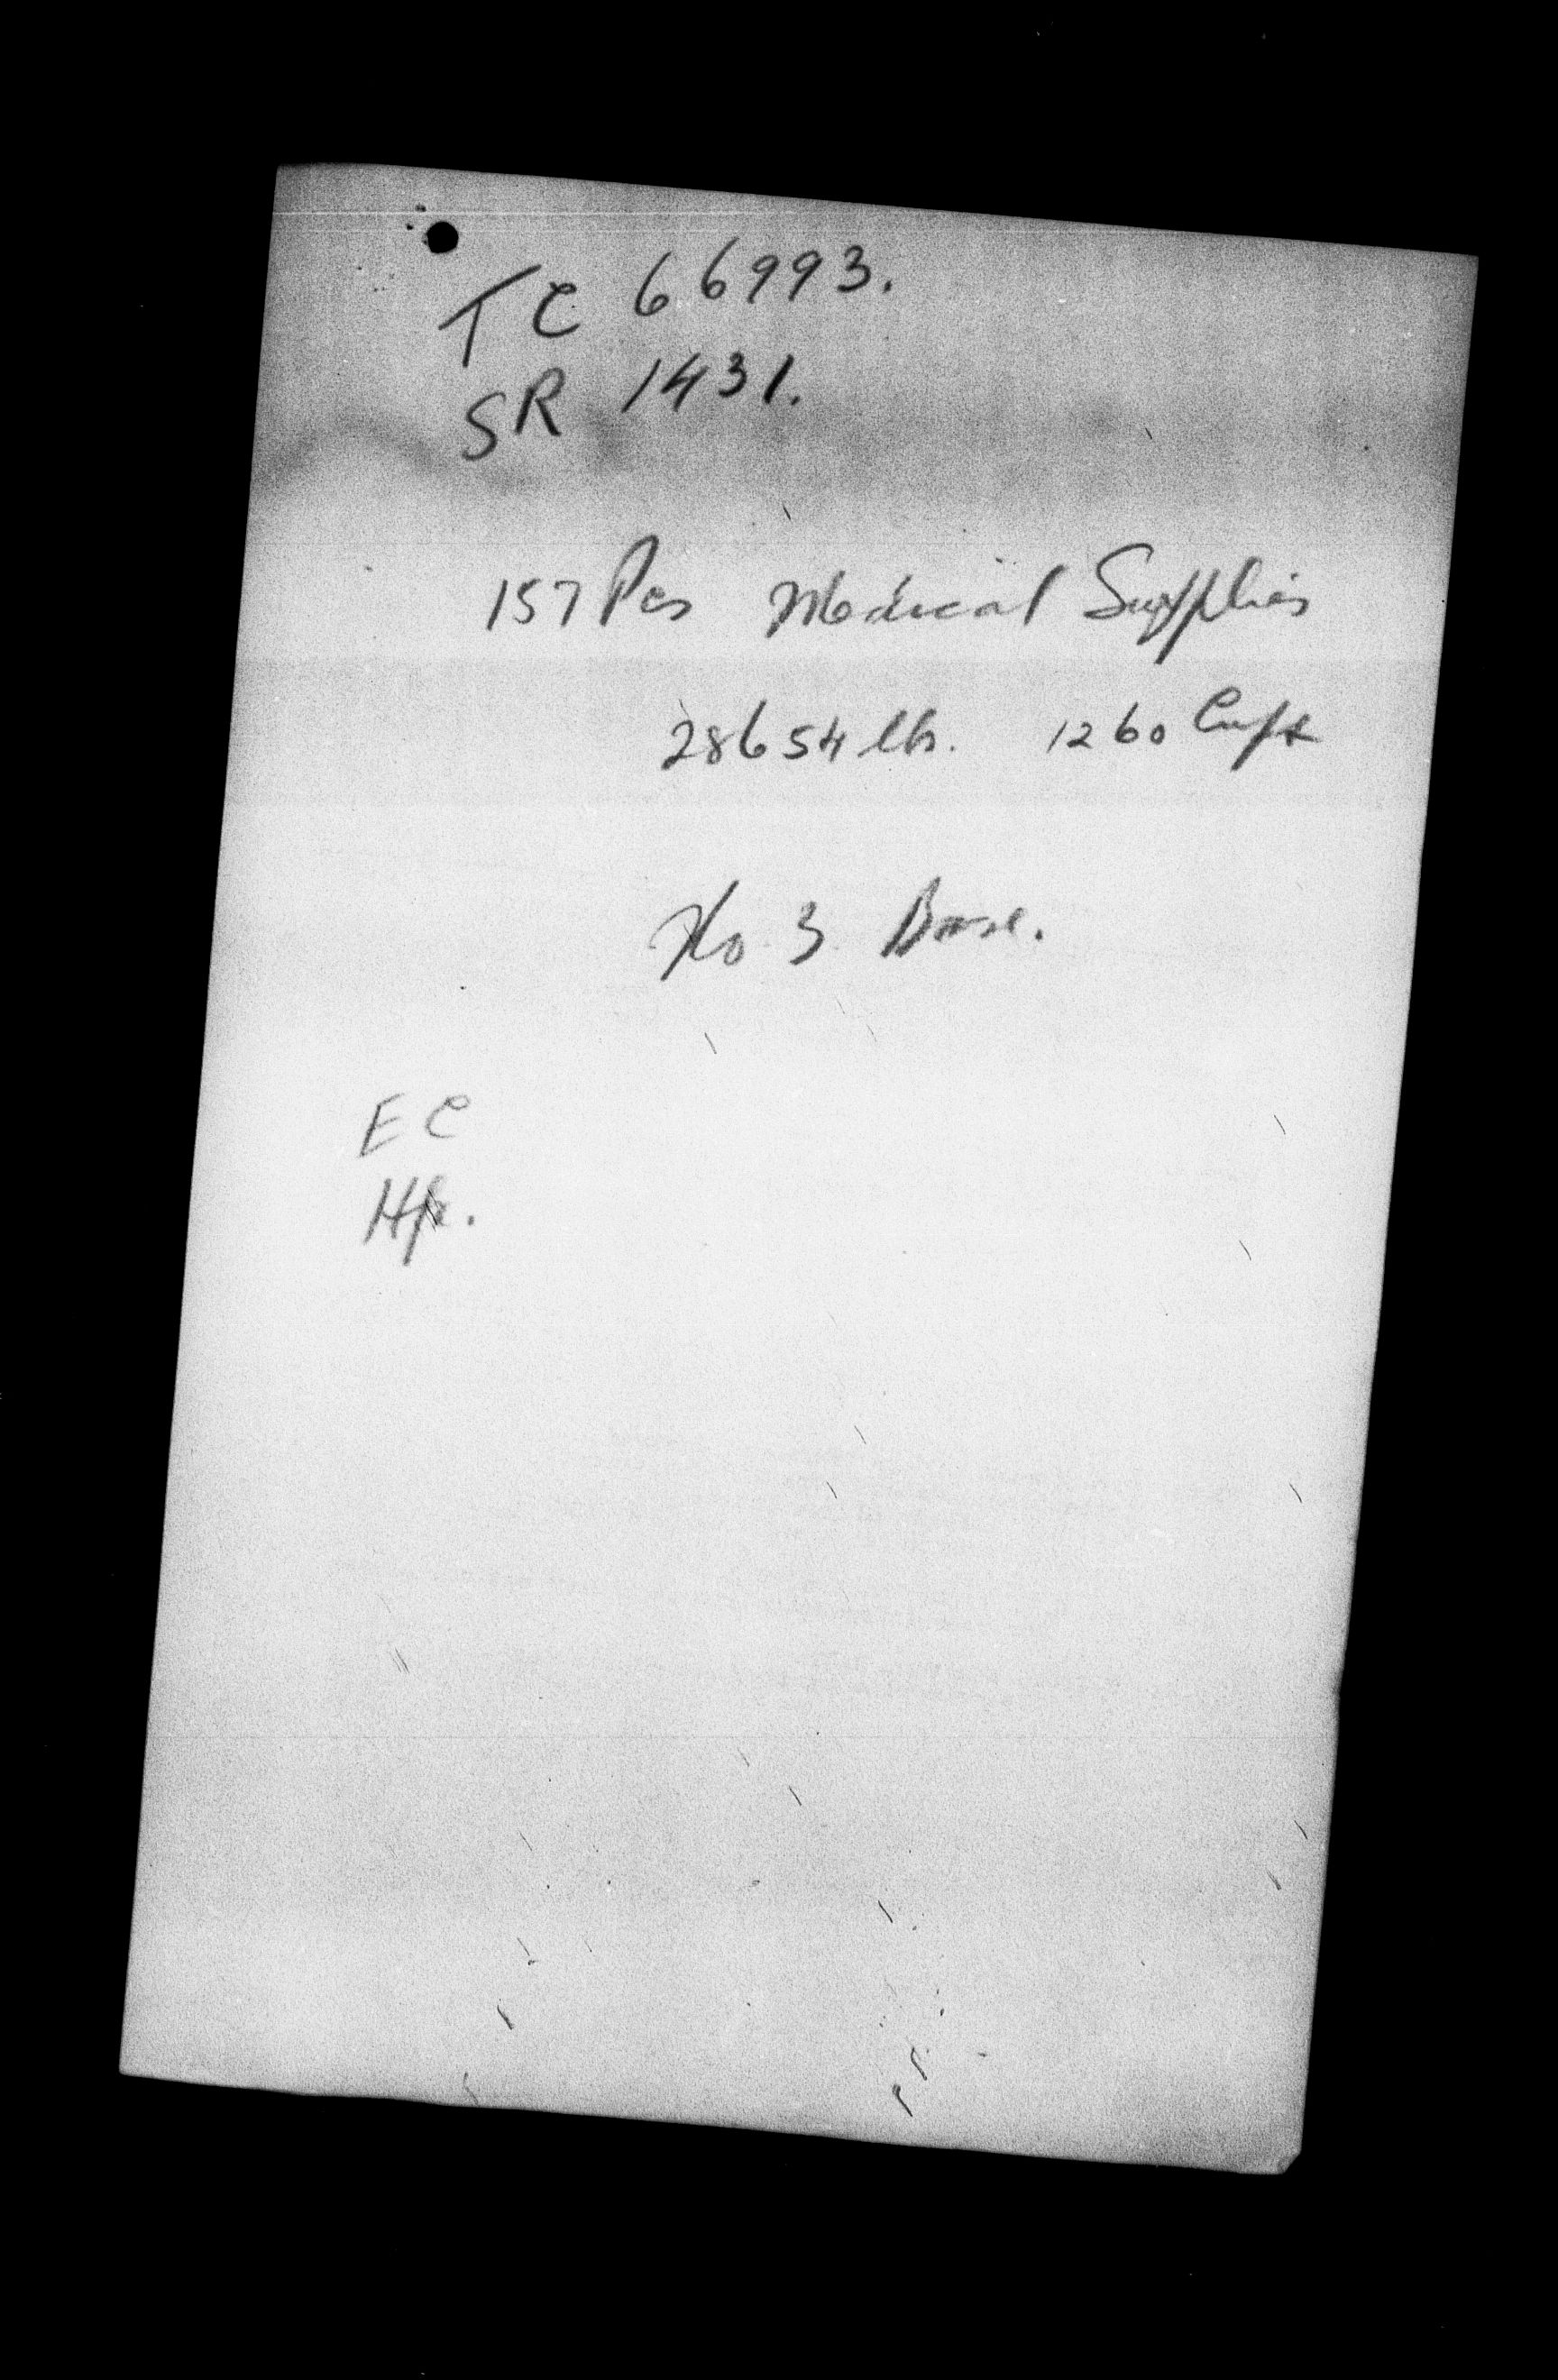 TC 66993.
SR 1431.
157 Pcs Medical Supplies
28654 lbs. 1260 Cuft
No 3 Base.
EC
Hfx.